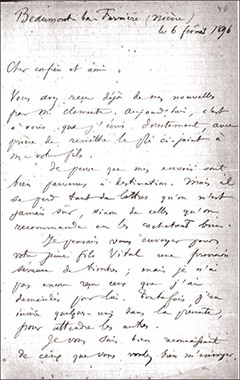 49
Beaumont la Ferrière (Nièvre)
le 6 février 1896
Cher confrère et ami,
Vous avez reçu déjà de mes nouvelles
par M. Clément. Aujourd'hui, c'est
à vous que j'écris directement, avec
prière de remettre le pli ci-joint à
M votre fils.
Je pense que mes envois sont
bien parvenus à destination. Mais il
se perd tant de lettres qu'on n'est
jamais sûr, sinon de celles qu'on
recommande en les cachetant bien.
Je pensais vous envoyer pour
votre jeune fils Vital une provision
de timbres ; mais je n'ai
pas encore reçu ceux que j'ai
demandés pour lui. Toutefois, j'en
insère quelques uns dans la présente,
pour attendre les autres.
Je vous suis bien reconnaissant
de ceux que vous voulez bien m'envoyer.